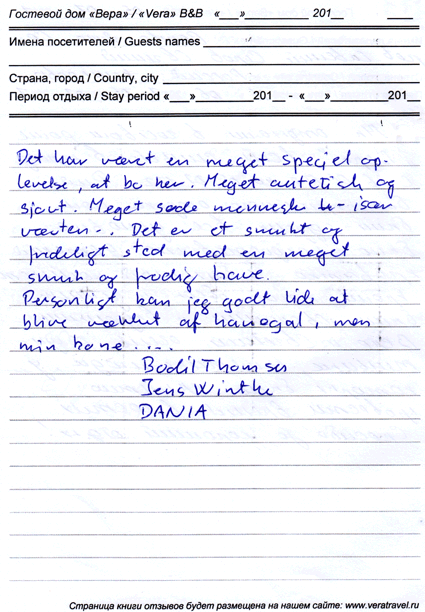 Гостевой дом «Вера» / «Vera» B&B «___»__________ 201__ ____
Имена посетителей / Guests names
Страна, город / Country, city
Период отдыха / Stay period «___»_________201__ - «___»_________201_
Det har været en meget speciel op-
levelse, at bo her. Meget autetisk og
sjovt. Meget søde mennesker - især
værten -. Det er et smukt og
fredeligt sted med en meget
smuk og frodig have.
Personligt kan jeg godt lide at
blive vækket af hanegal, men
min kone ....
Bodil Thomsen
Jens Winthe
DANIA
Страница книги отзывов будет размещена на нашем сайте: www.veratravel.ru